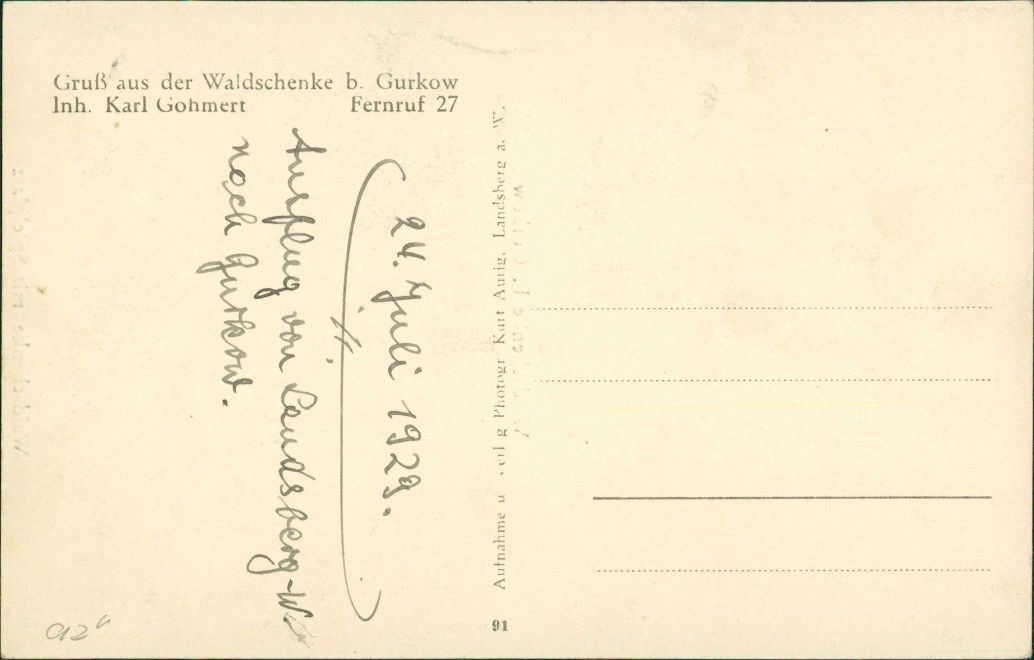 Gruß aus der Waldschenke b. Gurkow
Inh. Karl Gohmert Fernruf 27
24. Juli 1929.
Ausflug von Landsberg-W.
nach Gurkow.
Aufnahme u. Verlag Photogr. Kurt Aurig, Landsberg a. W.
91